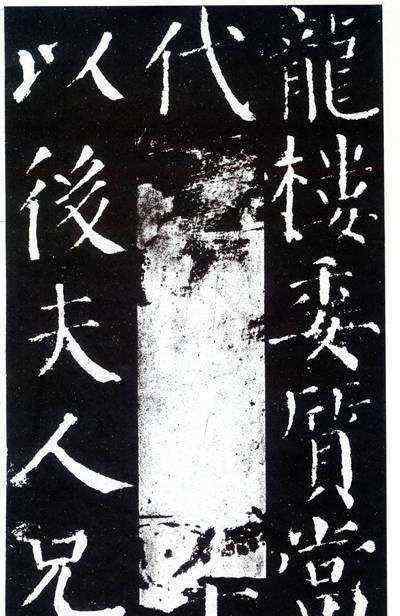 龍樓委質當
代
以後夫人兄